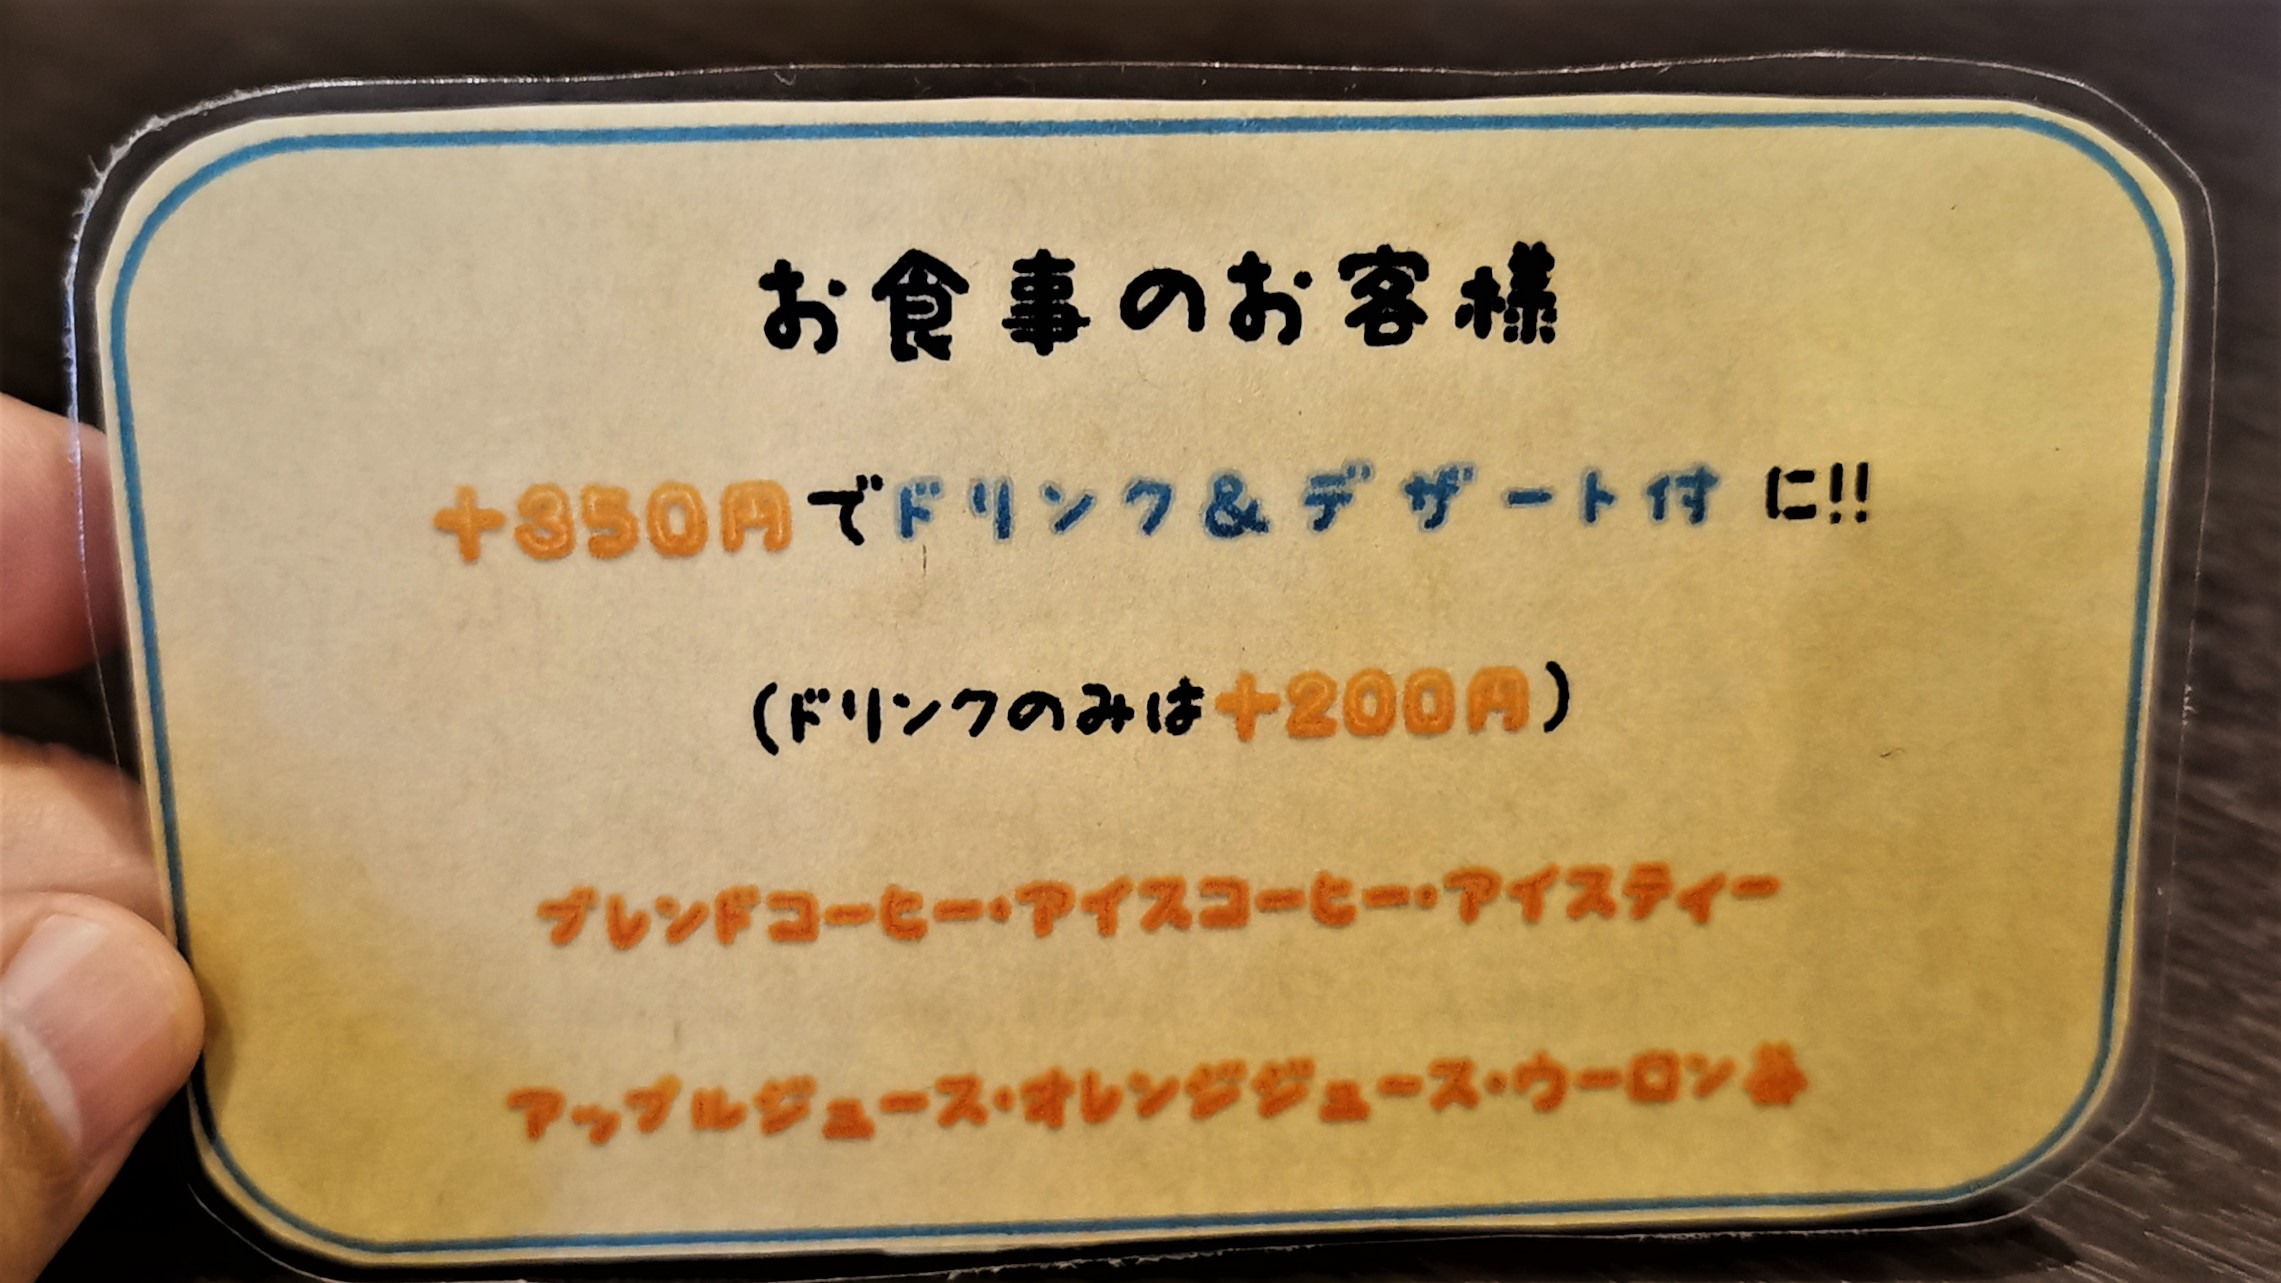 お食事のお客様
+350円でドリンク&デザート付に!!
(ドリンクのみは+200円)
ブレンドコーヒー・アイスコーヒー・アイスティー
アップルジュース・オレンジジュース・ウーロン茶